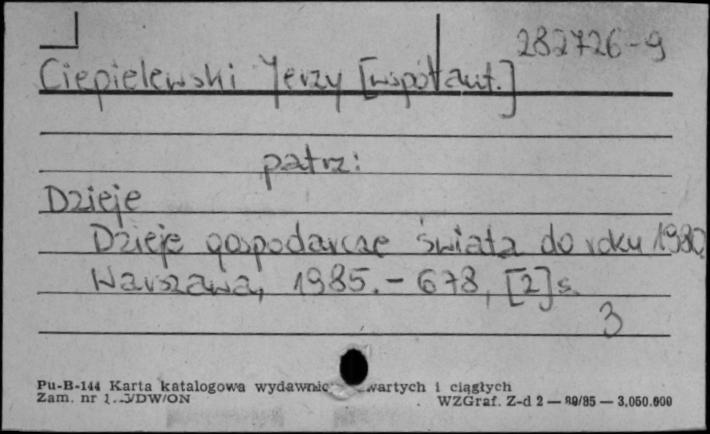 282726-9
Ciepielewski Jerzy [współaut.]
patrz:
Dzieje
Dzieje gospodarcze świata do roku 1980.
Warszawa, 1985. – 678, [2] s.
3
Pu-B-144 Karta katalogowa wydawnic wartych i ciągłych
Zam. nr /DW/ON WZGraf. Z-d 2 — 89/85 — 3.050.000